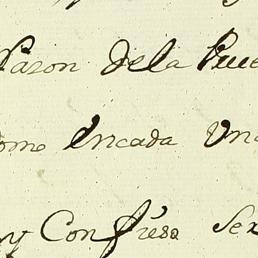 Razon dela Pue
omo Encada Una
y Confiesa Ser